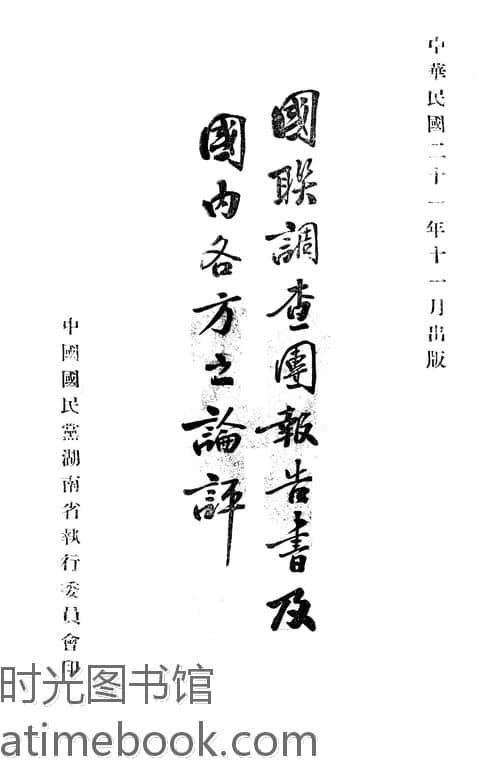 中華民國二十一年十一月出版
國聯調查團報告書及
國內各方之論評
中國國民黨湖南省執行委員會印
时光图书馆
atimebook.com